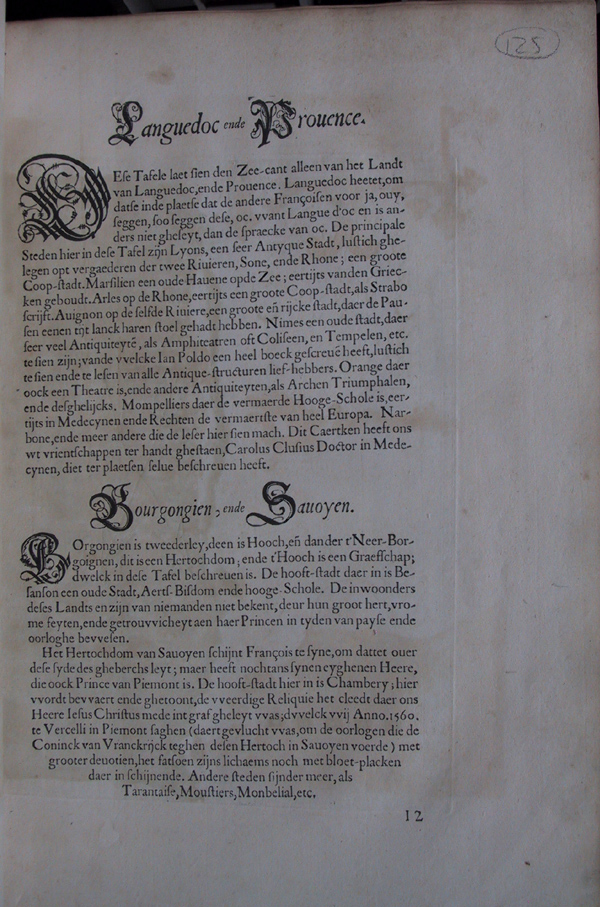 125
Languedoc ende Prouence.
DEſe Tafele laet ſien den Zee-cant alleen van het Landt
van Languedoc,ende Prouence. Languedoc heetet,om
datſe inde plaetſe dat de andere Françoiſen voor ja, ouy,
ſeggen, ſoo ſeggen deſe, oc. vvant Langue d'oc en is an-
ders niet gheſeyt, dan de ſpraecke van oc. De principale
Steden hier in deſe Tafel zijn Lyons, een ſeer Antyque Stadt, luſtich ghe-
legen opt vergaederen der twee Riuieren, Sone, ende Rhone; een groote
Coop-ſtadt. Marſilien een oude Hauene opde Zee; eertijts vanden Griec-
ken geboudt. Arles op de Rhone, eertijts een groote Coop-ſtadt,als Strabo
ſcrijft. Auignon op de ſelfde Riuiere,een groote eñ rijcke ſtadt,daer de Pau-
ſen eenen tijt lanck haren ſtoel gehadt hebben. Nimes een oude ſtadt,daer
ſeer veel Antiquiteytē, als Amphiteatren oft Coliſeen, en Tempelen, etc.
te ſien zijn;vande vvelcke Ian Poldo een heel boeck geſcreuē heeft,luſtich
te ſien ende te leſen van alle Antique-ſtructuren lief-hebbers. Orange daer
oock een Theatre is,ende andere Antiquiteyten,als Archen Triumphalen,
ende deſghelijcks. Mompelliers daer de vermaerde Hooge-Schole is,eer-
tijts in Medecynen ende Rechten de vermaertſte van heel Europa. Nar-
bone,ende meer andere die de leſer hier ſien mach. Dit Caertken heeft ons
wt vrientſchappen ter handt gheſtaen,Carolus Cluſius Doctor in Mede-
cynen, diet ter plaetſen ſelue beſchreuen heeft.
Bourgongien, ende Sauoyen.
BOrgongien is tweederley,deen is Hooch,eñ dander t'Neer-Bor-
goignen, dit is een Hertochdom; ende t'Hooch is een Graefſchap;
dwelck in deſe Tafel beſchreuen is. De hooft-ſtadt daer in is Be-
ſanſon een oude Stadt, Aertſ-Biſdom ende hooge-Schole. De inwoonders
deſes Landts en zijn van niemanden niet bekent, deur hun groot hert,vro-
me feyten,ende getrouvvicheyt aen haer Princen in tyden van payſe ende
oorloghe bevveſen.
Het Hertochdom van Sauoyen ſchijnt François te ſyne,om dattet ouer
deſe ſyde des gheberchs leyt; maer heeft nochtans ſynen eyghenen Heere,
die oock Prince van Piemont is. De hooft-ſtadt hier in is Chambery; hier
vvordt bevvaert ende ghetoont,de vveerdige Reliquie het cleedt daer ons
Heere Ieſus Chriſtus mede int graf gheleyt vvas;dvvelck vvij Anno.1560.
te Vercelli in Piemont ſaghen (daert gevlucht vvas,om de oorlogen die de
Coninck van Vranckrijck teghen deſen Hertoch in Sauoyen voerde) met
grooter deuotien,het fatſoen zijns lichaems noch met bloet-placken
daer in ſchijnende. Andere ſteden ſijnder meer, als
Tarantaiſe,Mouſtiers,Monbelial,etc.
12